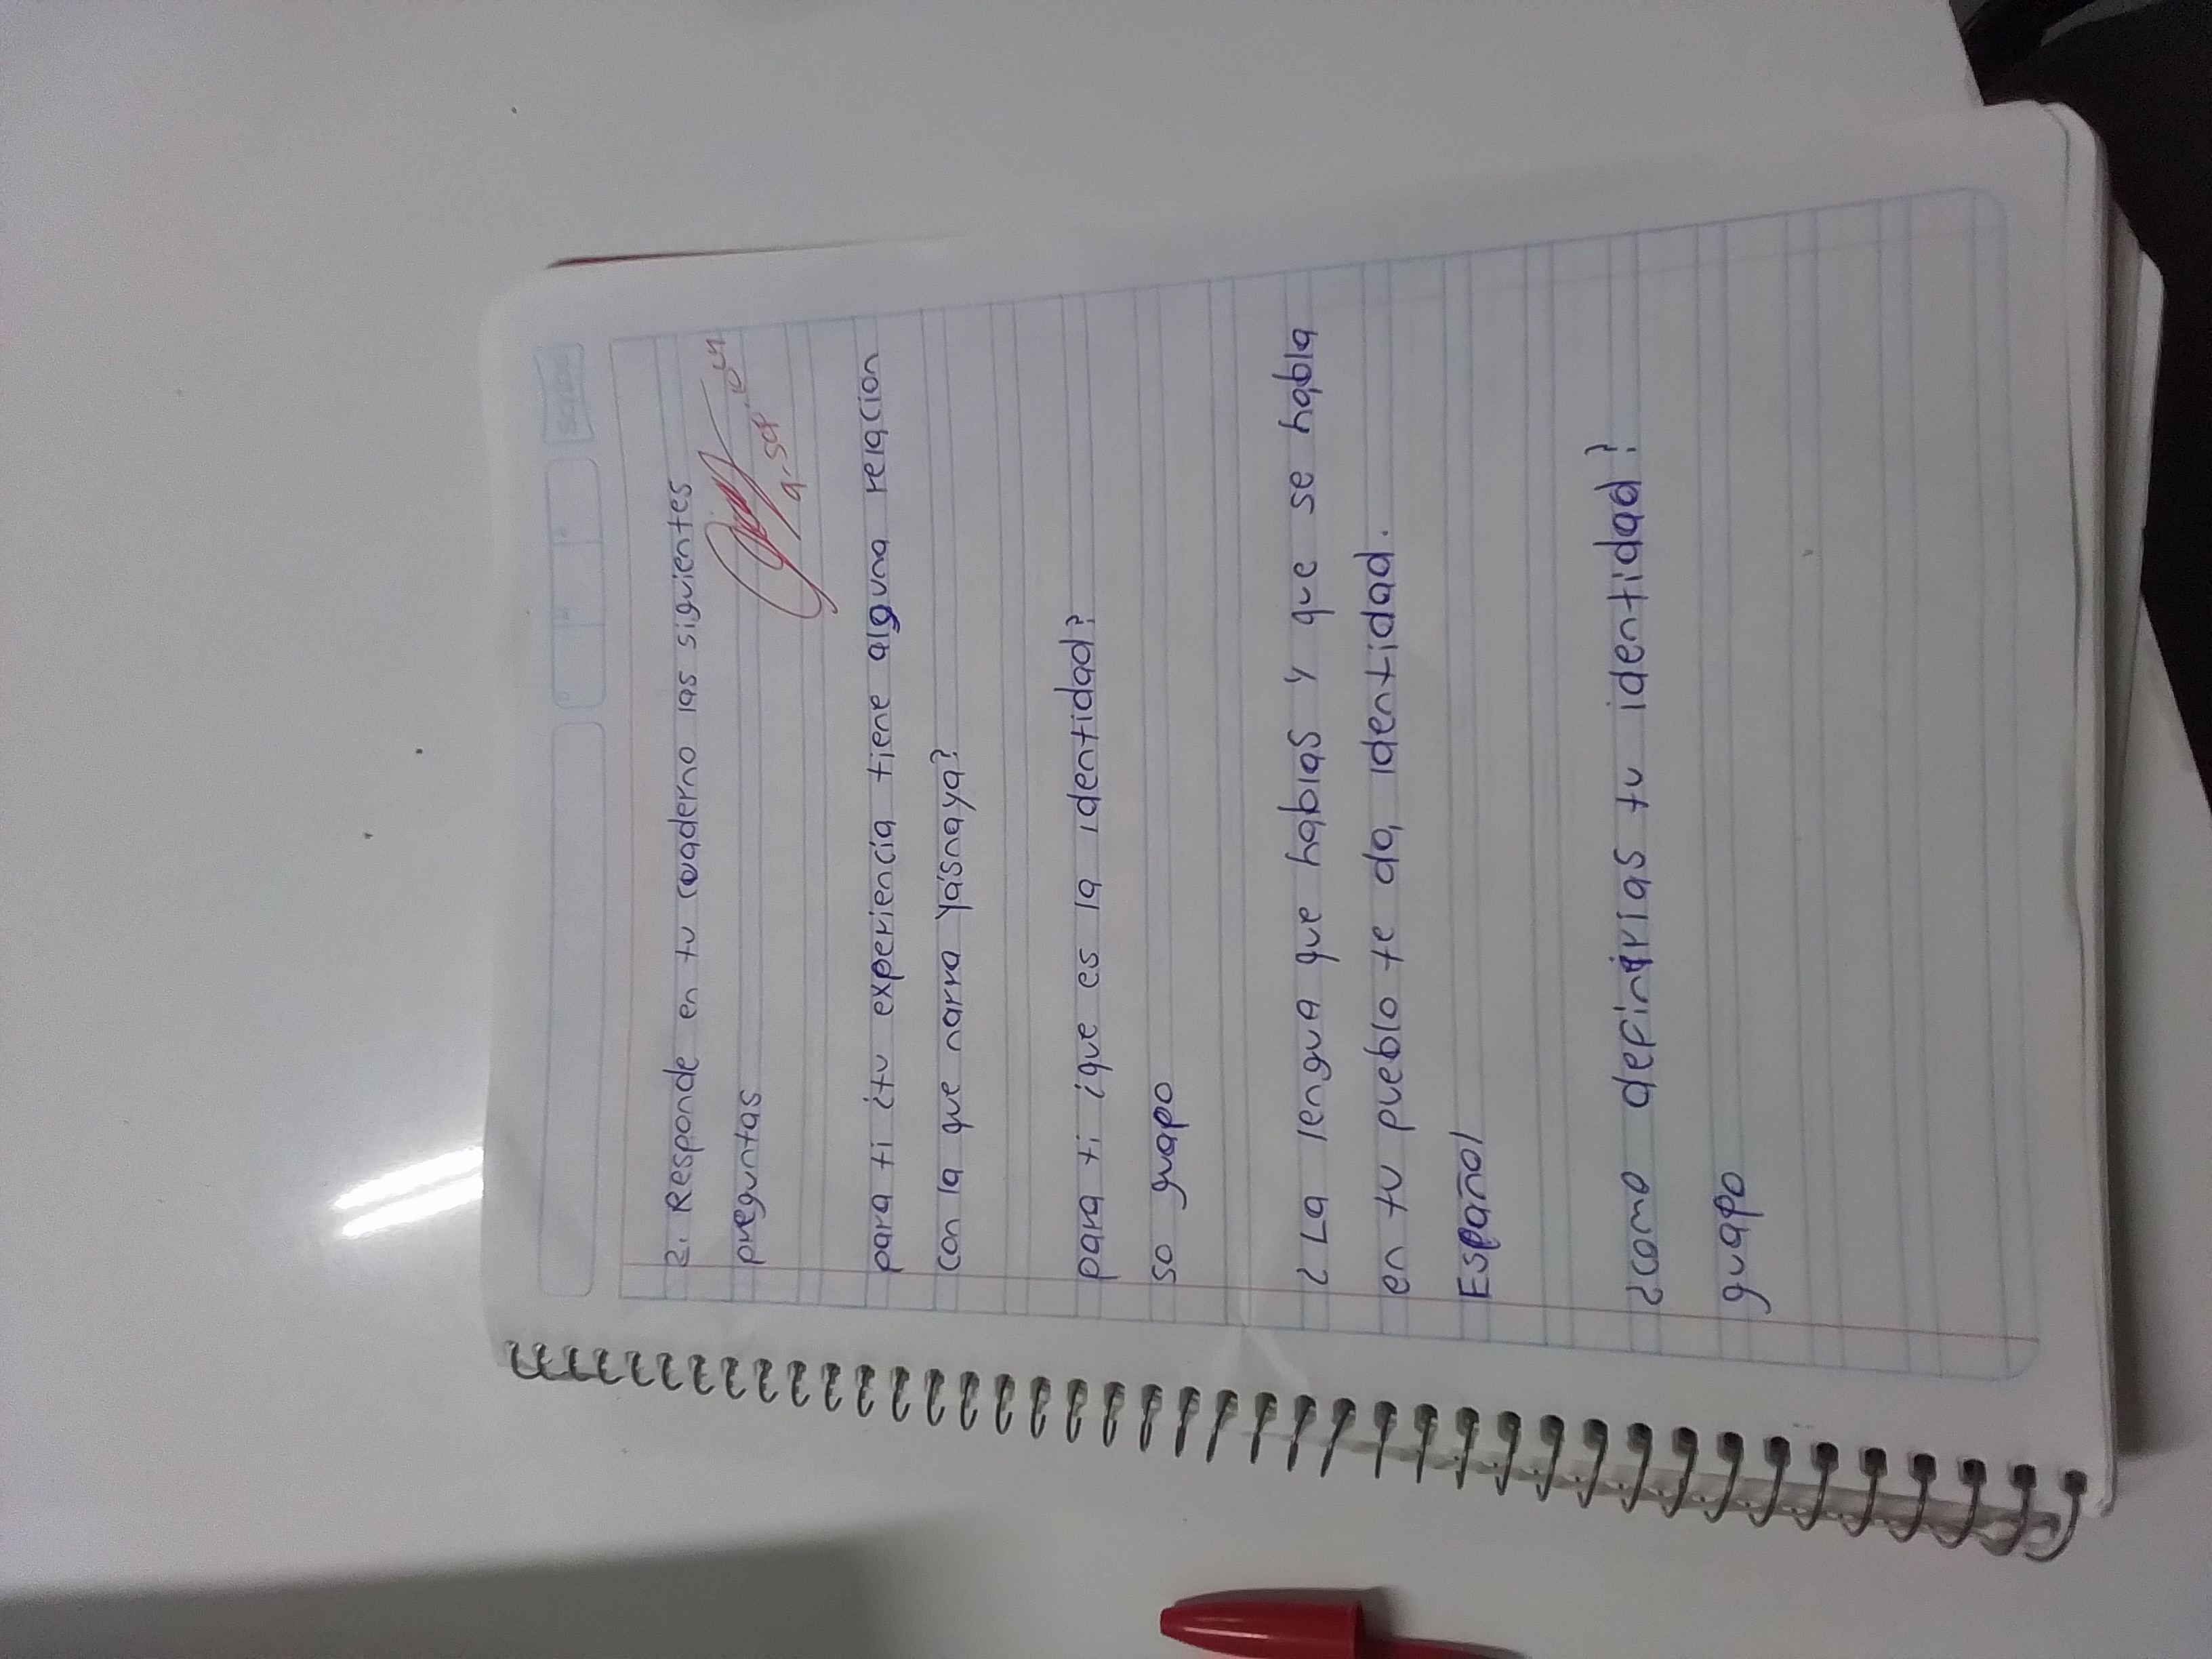 2. Responde en tu cuaderno las siguientes
preguntas
para ti ¿tu experiencia tiene alguna relacion
con la que narra Yásnaya?
para ti ¿que es la identidad?
so guapo
¿La lengua que hablas y que se habla
en tu pueblo te da identidad.
Español
¿como definirías tu identidad?
guapo